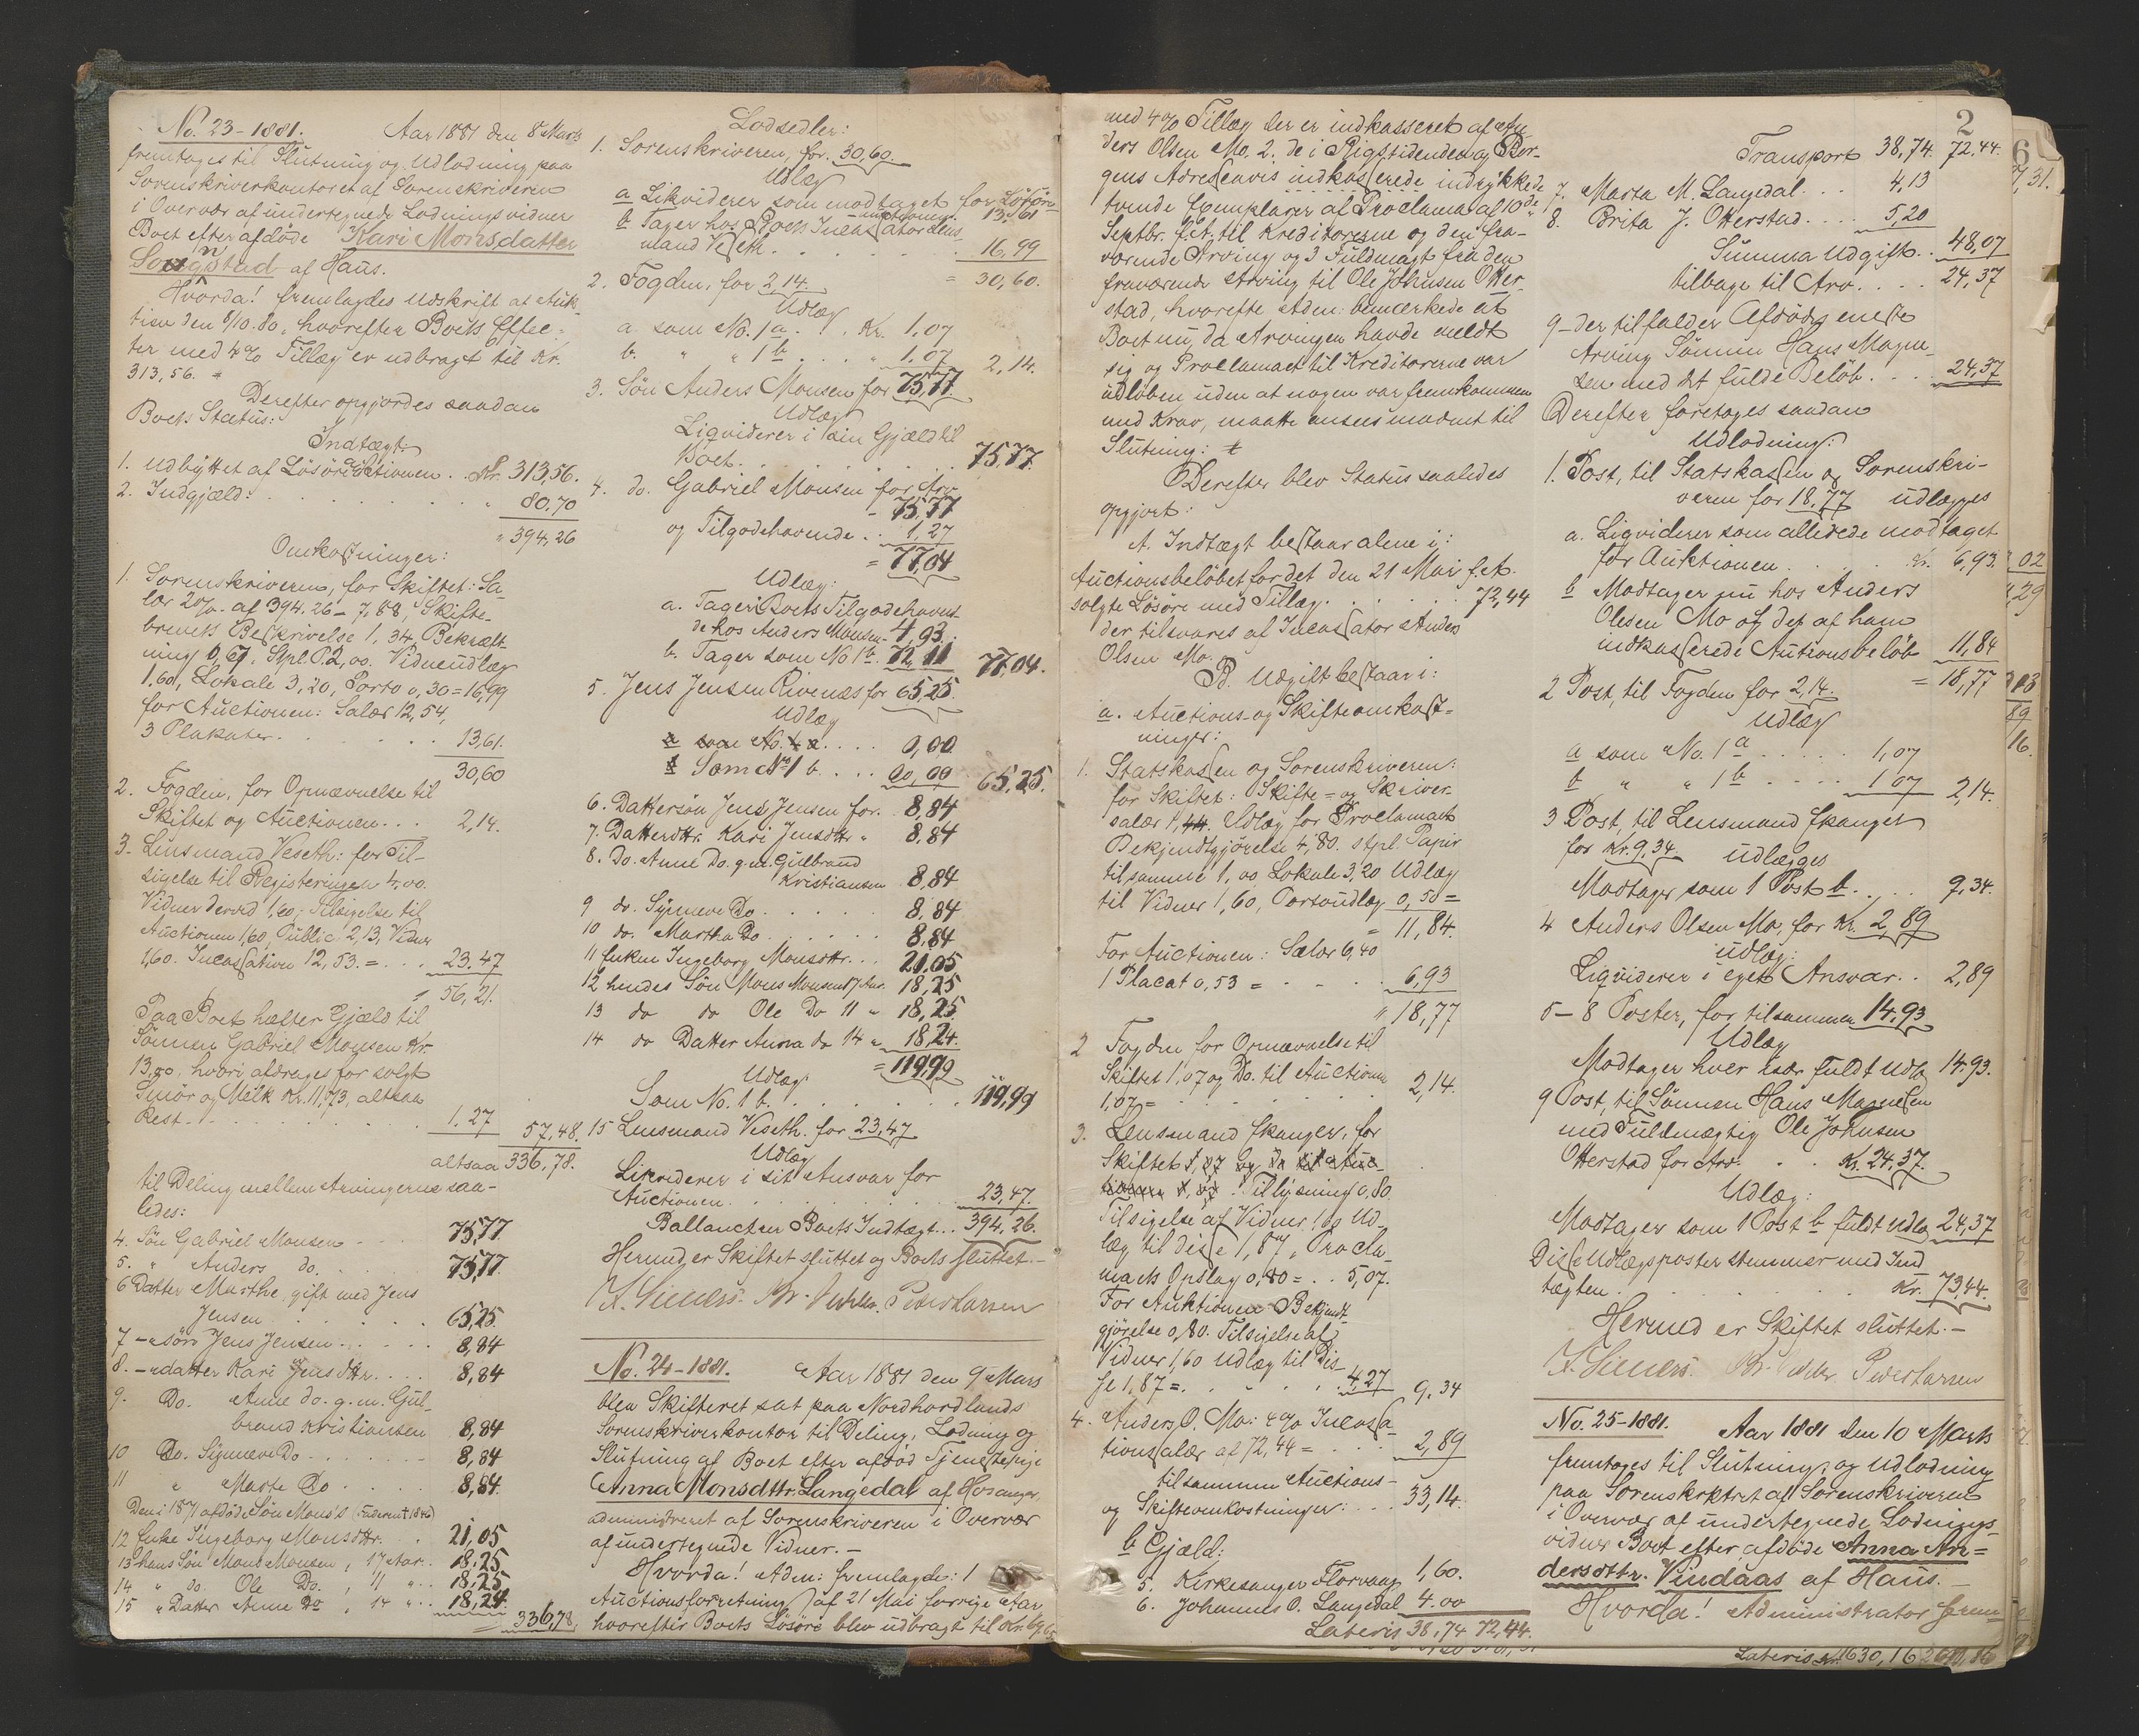 No. 23-1881. Aar 1881 den 8 Marts
fremtages til Slutning og Udlodning paa
Sorenskriverkontoret af Sorenskriveren
i Overvær af undertegnede Lodningsvidner
Boet efter afdöde Kari Monsdatter
af Haus.
Hvorda! fremlagdes Udskrift af Auk-
tion den 8/10. 80, hvorefter Boets Effec-
ter med 4% Tillæg er udbragt til Kr.
313,56. =
Derefter opgjordes saadan
Boets Status:
Indtægt:
1. Udbyttet af Lösöreauctionen . . Kr. 313,56.
2. Indgjæld: . . . " 80,70
" 394,26
Omkostninger:
1. Sorenskriveren, for Skiftet: Sa-
lær 2% af 394.26 - 7,88, Skifte-
brevets Beskrivelse 1,34. Bekræft-
ning 0,67. Stpl. P. 2,00. Vidneudlæg
1.60, Lokale 3,20, Porto 0,30 = 16,99
for Auctionen: Salær 12,54,
3 Plakater . . . 13,61.
30,60
2. Fogden, for Opnævnelse til
Skiftet og Auctionen . . . 2,14.
3. Lensmand Veseth: for Til-
sigelse til Registeringen 4.00.
Vidner derved 1,60, Tilsigelse til
Auctionen 1,60, Public. 2,13, Vidner
1,60. Incassation 12,53. = . . . 23.47
" 56,21.
Paa Boet hefter Gjæld til
Sönnen Gabriel Monsen Kr.
13.00, hvori afdrages for solgt
Smör og Melk Kr. 11,73, altsaa
Rest . . . 1.27 57,48.
altsaa 336,78.
til Deling mellem Arvingerne saa-
ledes:
4. Sön Gabriel Monsen . . . 75,77
5. " Anders do. . . . 75,77
6 Datter Marthe, gift med Jens
Jensen . . . 65,25.
7 - "sön Jens Jensen . . . 8,84
8. - "datter Kari Jensdttr. . . . 8,84
9. Do. Anne do. g. m. Gul-
brand Kristiansen 8,84
10 Do. Synneve Do . . . 8,84
11 " Marte Do . . . 8,84.
Den i 1871 afdöde Sön Mons's
12 Enke Ingeborg Monsdttr. . 21,05
13 hans Sön Mons Monsen, 17 Aar. . 18,25
14 " do. Ole Do. , 11 " . . 18,25
15 " Datter Anne Do , 14 " . . 18,24.
336,78.
Lodsedler:
1. Sorenskriveren, for. 30,60.
Udlæg
a Likviderer som modtaget for Lösöre-
auctionen. 13,61
b Tager hos Boets Incassator Lens-
mand Veseth. . . . 16,99
= 30,60.
2. Fogden, for 2,14.
Udlæg
a som No. 1 a. . . Kr. 1,07
b. " " 1 b . . . " 1,07 2,14.
3. Sön Anders Monsen for 75,77.
Udlæg
Liqviderer i sin Gjæld til
Boet . . . 75,77.
4. do. Gabriel Monsen for Arv
- 75,77
og Tilgodehavende . . 1,27
= 77,04
Udlæg:
a. Tager Boets Tilgodehavend-
de hos Anders Monsen - 4,93.
b. Tager som No 1 b. 72,11 77,04.
5. Jens Jensen Rivenæs for 65,25.
Udlæg
a som No. 4 a . . . . 0,00
b Som No 1 b . . . 00,00 65,25.
6. Dattersön Jens Jensen for. 8,84
7. Datterdttr. Kari Jensdttr " 8,84
8. Do. Anne Do. g. m. Gulbrand
Kristiansen 8,84
9 do. Synneve Do . . . 8,84
10 do. Martha Do . . . 8,84
11 Enken Ingeborg Monsdttr. . . 21,05
12 hendes Sön Mons Monsen 17 Aar. 18,25
13 do do Ole Do 11 " 18,25.
14 do Datter Anna do 14 " 18,24.
= 119,99
Udlæg
Som No. 1 b . . . 119,99
15 Lensmand Veseth. for 23,47
Udlæg
Likviderer i sit Ansvar for
Auctionen . . . 23,47.
Ballancen Boets Indtægt . . . 394,26.
Hermed er Skiftet sluttet og Boets sluttet. -
Peder Larsen
No. 24-1881. Aar 1881 den 9 Mars
blev Skifteret sat paa Nordhordlands
Sorenskriverkontor til Deling, Lodning og
Slutning af Boet efter afdöd Tjenestepige
Anna Monsdttr. Langedal af Hosanger,
administreret af Sorenskriveren i Overvær
af undertegnede Vidner. -
Hvorda! Adm: fremlagde: 1
Auctionsforretning af 21 Mai forrige Aar,
hvorefter Boets Lösöre blev udbragt til Kr. 69,65
2
med 4% Tillæg der er indkasseret af An-
ders Olsen Mo, 2. de i Rigstidenden og Ber-
gens Adresseavis indkasserede indrykkede
tvende Exemplarer af Proclama af 10de
Septbr. f. A. til Kreditorerne og den fra-
værende Arving og 3 Fuldmagt fra den
fraværende Arving til Ole Johnsen Otter-
stad, hvorefter Adm: bemærkede at
Boet nu, da Arvingen havde meldt
sig og Proclamaet til Kreditorerne var
udlöben uden at nogen var fremkommen
med Krav, maatte ansees modent til
Slutning:
Derefter blev Status saaledes
opgjort:
A. Indtægt bestaar alene i:
Auctionsbelöbet for det den 21 Mai f. A.
solgte Lösöre med Tillæg . . . 72,44
der tilsvares af Incassator Anders
Olsen Mo.
B. Udgift bestaar i:
a. Auctions- og Skifteomkost-
ninger:
1. Statskassen og Sorenskriveren:
for Skiftet: Skifte- og Skriver-
salær 1,44. Udlæg for Proclamaets
Bekjendtgjörelse 4,80. stpl. Papir
til samme 1,00 Lokale 3,20 Udlæg
til Vidner 1,60, Portoudlæg 0,50 =
= 11,84.
For Auctionen: Salær 6,40
1 Placat 0,53 = . . . 6,93
" 18,77
2 Fogden for Opnævnelse til
Skiftet 1,07 og Do. til Auctionen
1,07 = . . . 2,14.
3. Lensmand Skanger, for
Skiftet
Tillysning 0,80.
Tilsigelse af Vidner 1,60 Ud-
læg til disse 1,87, Procla-
maets Opslag 0,80 = . . 5,07.
For Auktionen Bekjendt-
gjörelse 0,80. Tilsigelse af
Vidner 1,60 Udlæg til Dis-
se 1,87 = . . . 4,27 9,34
4. Anders O. Mo: 4% Incassa-
tionssalær af 72,44 = . . . 2,89
tilsammen Auctions-
og Skifteomkostninger: . . . 33,14.
b Gjæld:
5. Kirkesanger Florvaag 1,60.
6. Johannes O. Langedal 4.00
Lateris 38,74 72,44.
Transport 38,74. 72,44.
7. Marta M. Langedal . . . 4,13
8. Brita J. Otterstad . . . 5,20
Summa Udgift . . 48,07
tilbage til Arv . . . . 24,37
9 - der tilfalder Afdödes eneste
Arving Sönnen Hans Magne-
sen med det fulde Belöb. . . . 24,37
Derefter foretages saadan
Udlodning:
1. Post, til Statskassen og Sorenskri-
veren for 18,77 udlægges
a. Liqviderer som allerede modtaget
for Auktionen . . . Kr. 6,93.
b Modtager nu hos Anders
Olsen Mo af det af ham
indkasserede Autionsbelöb 11,84
= 18,77
2 Post, til Fogden for 2,14.
Udlæg
a som No. 1 a . . . 1,07
b " " 1 b . . . 1 07 2,14.
3 Post, til Lensmand Skanger
for Kr. 9,34. udlægges
Modtager som 1 Post b. . . . 9,34.
4 Anders Olsen Mo, for Kr. 2,89
udlæg:
Liqviderer i eget Ansvar . . 2,89
5-8 Poster, for tilsammen 14,93
Udlæg
Modtager hver især fuldt Udlæg 14.93.
9 Post, til Sönnen Hans Magnesen
med Fuldmægtig Ole Johnsen
Otterstad for Arv. . . Kr. 24,37.
Udlæg:
Modtager som 1 Post b fuldt Udlæg 24,37
Disse Udlægsposter stemmer med Ind-
tægten . . . Kr. 73,44.
Hermed er Skiftet sluttet. -
Peder Larsen
No. 25-1881. Aar 1881 den 10 Marts
fremtages til Slutning og Udlodning
paa Sorenskrktret af Sorenskriveren
i Overvær af undertegnede Lodnings-
vidner Boet efter afdöde Anna An-
dersdttr. Vindaas af Haus. -
Hvorda! Administrator frem-
Lateris Kr. 1630,16